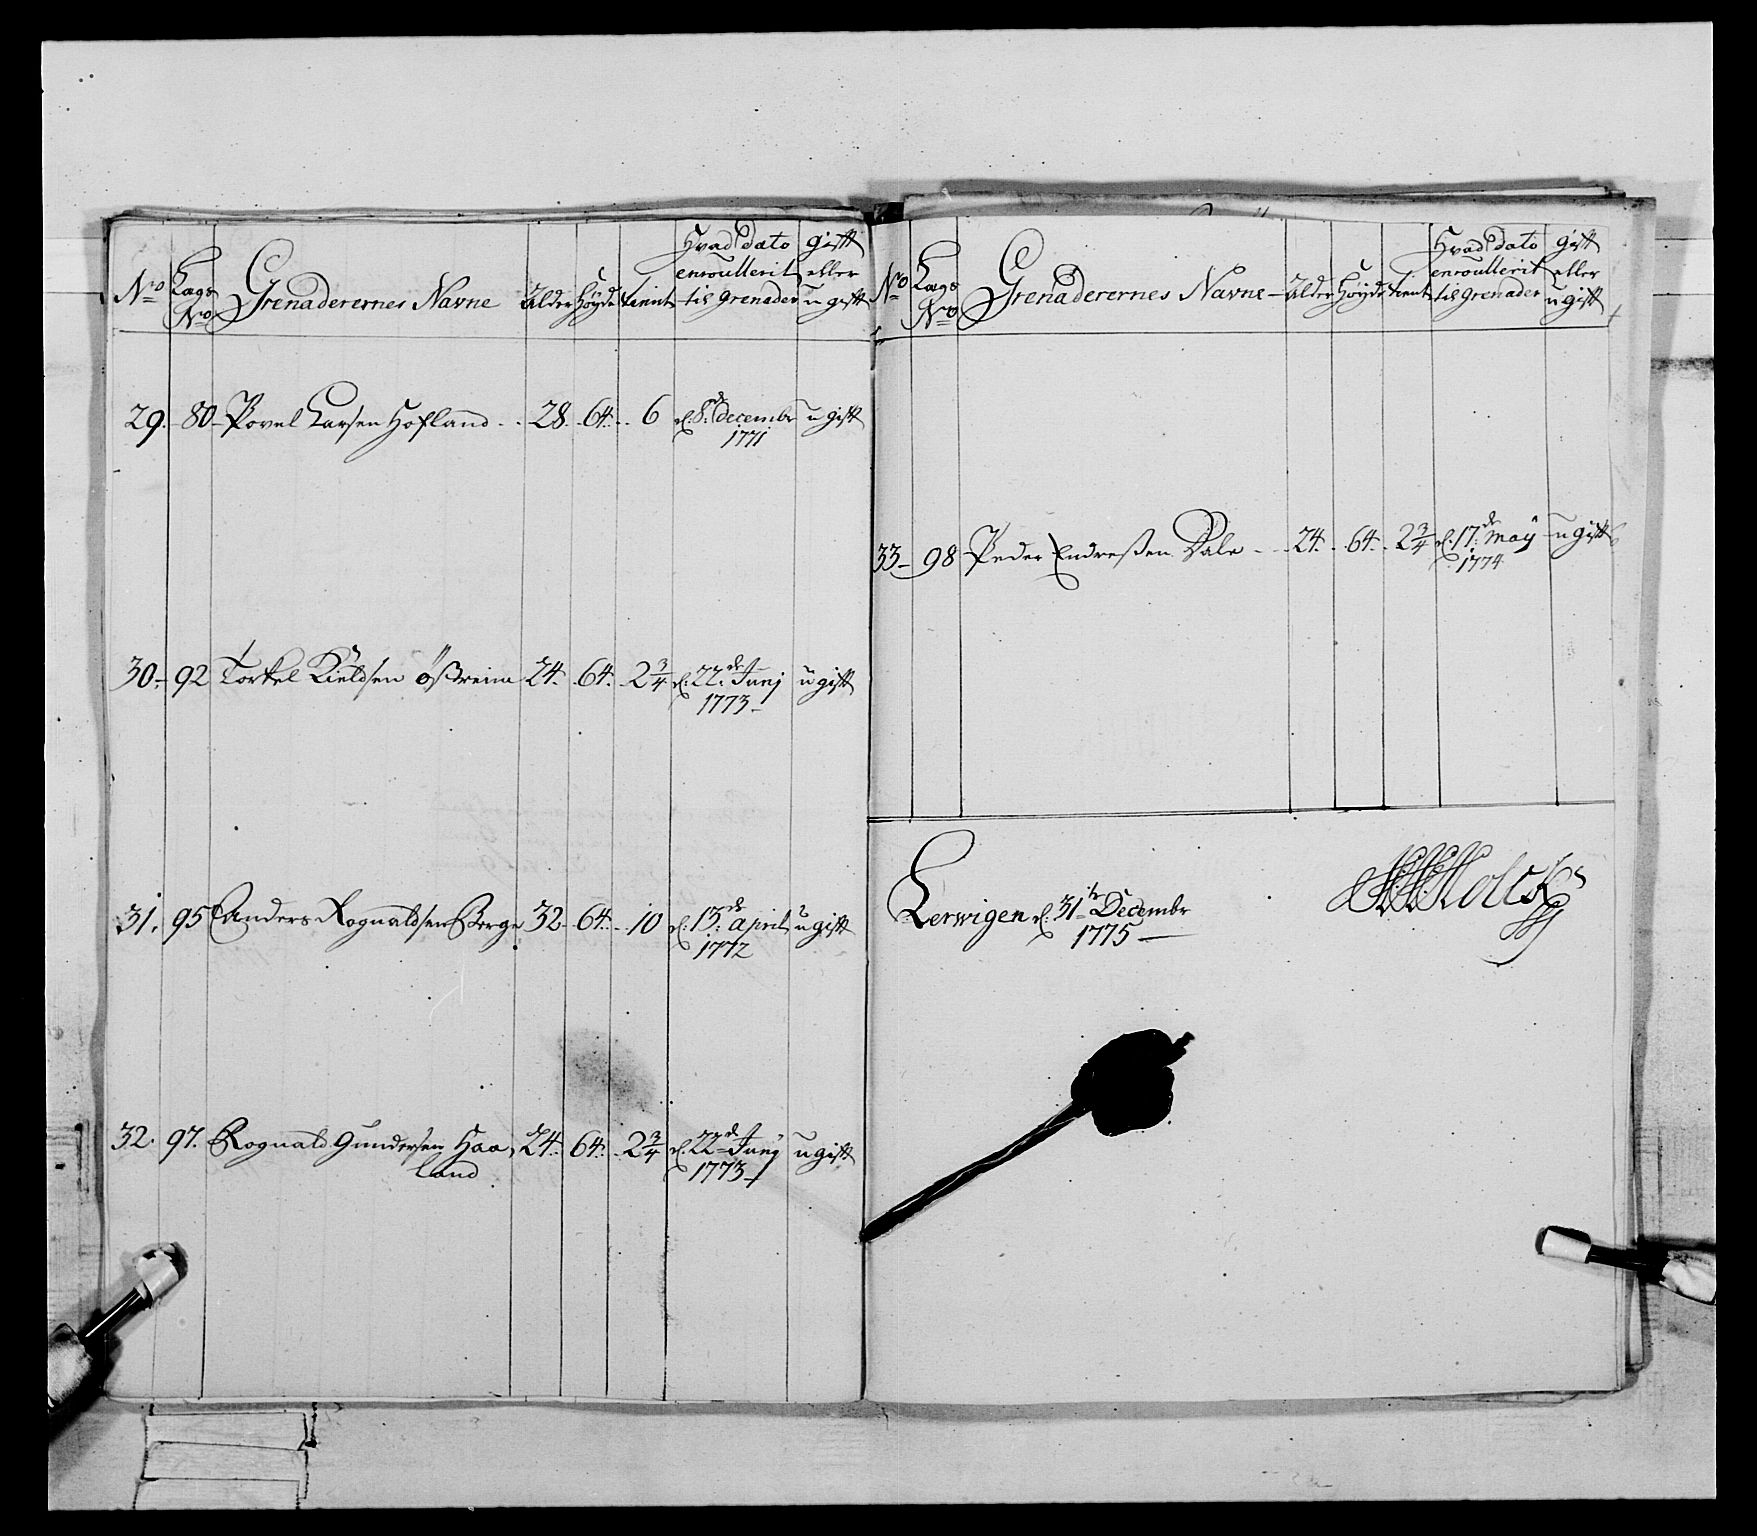 No Lægs No Grenaderernes Navne Alder Höyde tient Hvad dato enroullerit til grenader gift eller ugift
29. 80 Povel Larsen Hofland 28. 64. 6 d. 8de decembr 1771 ugift
30. 92 Torkel Kieldsen Östreim 24. 64. 2 3/4 d. 22de Junj 1773 ugift
31. 95 Anders Rognaldsen Berge 32 64. 10 d. 13de april 1772 ugift
32. 97. Rognald Gundersen Haa, 24. 64. 2 3/4 d. 22de Junj 1773 ugift
land
No Lægs No Grenaderernes Navne Alder Höyde tient Hvad dato enroullerit til grenader gift eller ugift
33 98 Peder Endreßen Dale 24. 64. 2 3/4 d. 17de May 1774 ugift
Lerwigen d. 31te Decembr
1775
Holck